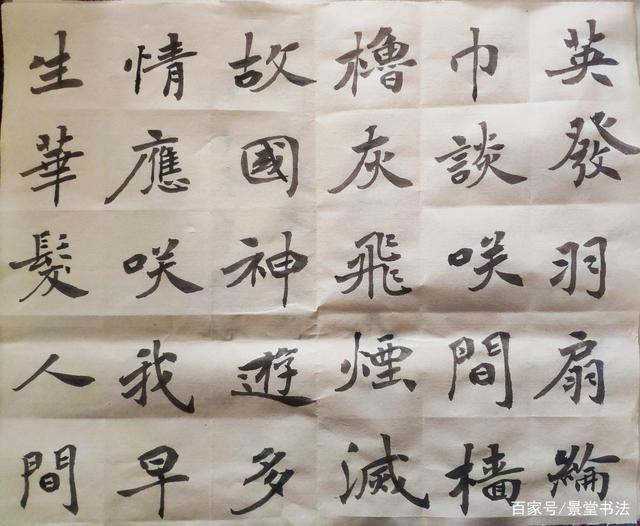 英發羽扇綸
巾談咲間檣
櫓灰飛煙滅
故國神遊多
情應咲我早
生華髮人間
百家号/景堂书法